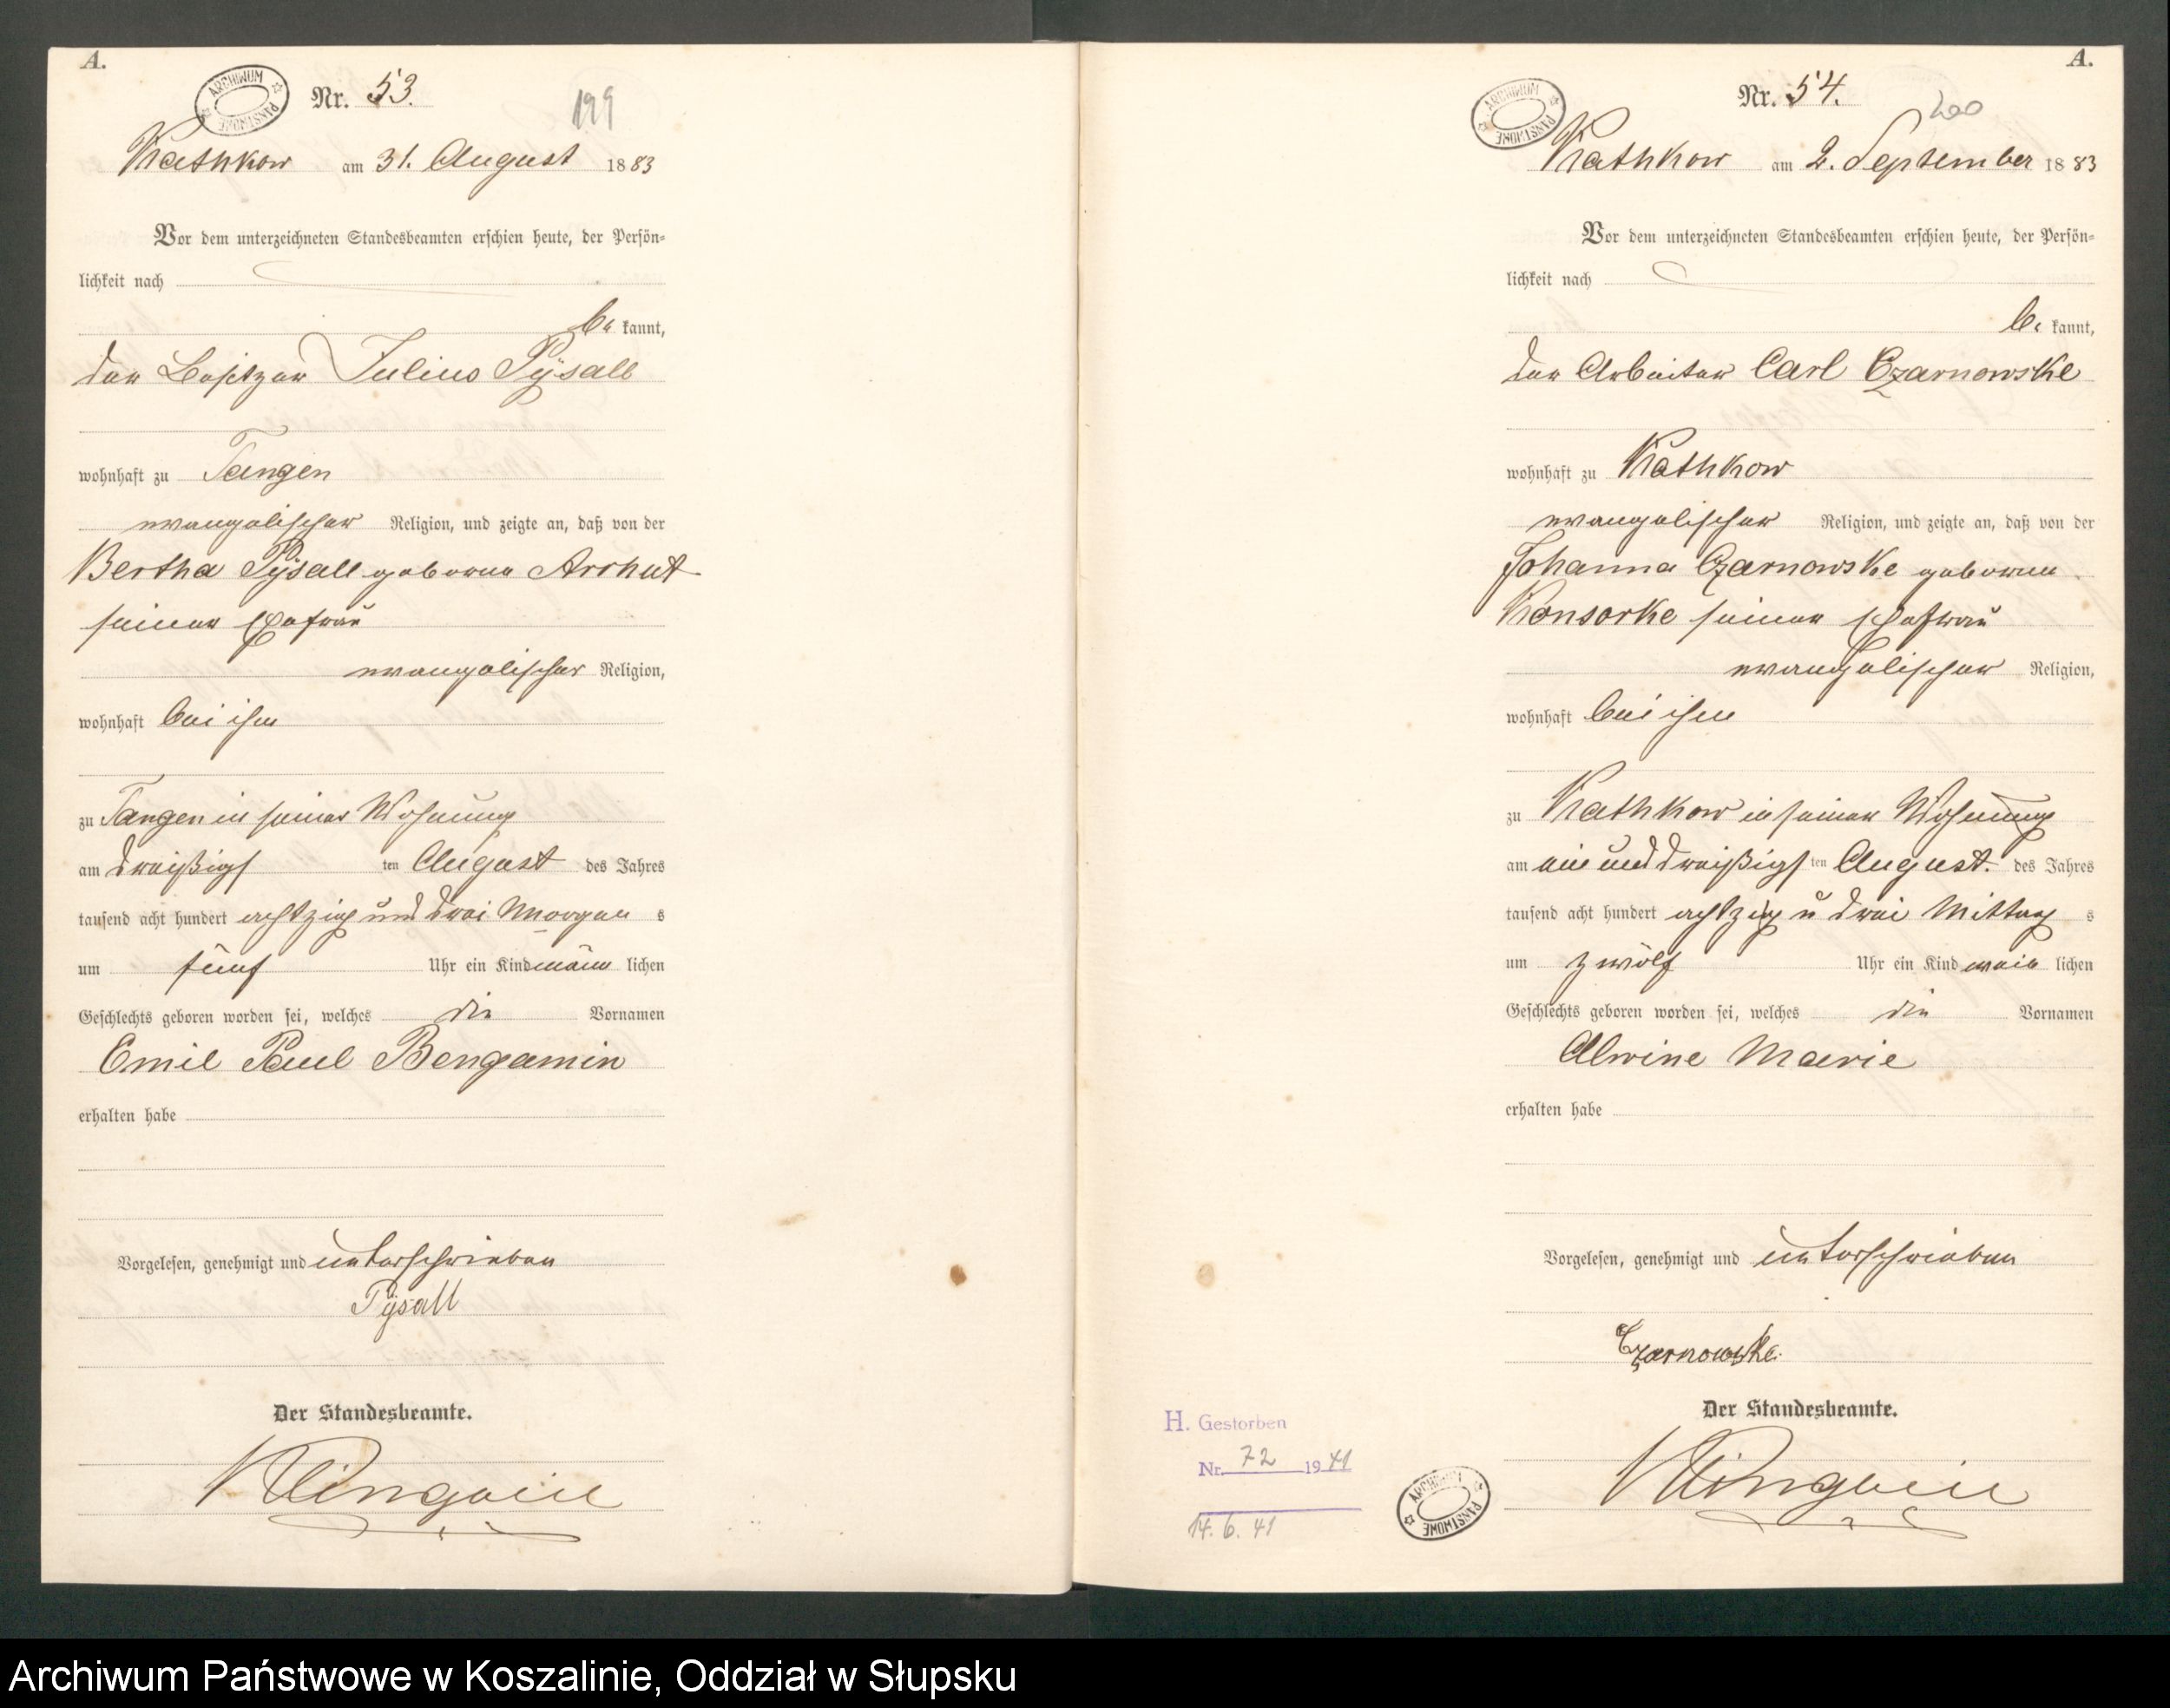 A.
ARCHIWUM PAŃSTWOWE
Nr. 53.
199
Kathkow am 31. August 1883
Vor dem unterzeichneten Standesbeamten erschien heute, der Persön-
lichkeit nach
be kannt,
der Besitzer Julius Pÿsall
wohnhaft zu Tangen
evangelischer Religion, und zeigte an, daß von der
Bertha Pÿsall geborne Arrhut
seiner Ehefrau
evangelischer Religion,
wohnhaft bei ihm
zu Tangen in seiner Wohnung
am dreißigs ten August des Jahres
tausend acht hundert achtzig und drei Morgen s
um fünf Uhr ein Kind männ lichen
Geschlechts geboren worden sei, welches die Vornamen
Emil Paul Bengamin
erhalten habe
Vorgelesen, genehmigt und unterschrieben
Pÿsall
Der Standesbeamte.
A.
ARCHIWUM PAŃSTWOWE
Nr. 54.
200
Kathkow am 2. September 1883
Vor dem unterzeichneten Standesbeamten erschien heute, der Persön-
lichkeit nach
be kannt,
der Arbeiter Carl Czarnowske
wohnhaft zu Kathkow
evangelischer Religion, und zeigte an, daß von der
Johanna Czarnowske geborne
Konsorke seiner Ehefrau
evangelischer Religion,
wohnhaft bei ihm
zu Kathkow in seiner Wohnung
am ein und dreißigs ten August. des Jahres
tausend acht hundert achtzig u drei Mittag s
um zwölf Uhr ein Kind weib lichen
Geschlechts geboren worden sei, welches die Vornamen
Alwine Marie
erhalten habe
Vorgelesen, genehmigt und unterschrieben
Czarnowske.
Der Standesbeamte.
H. Gestorben
Nr. 72 1941
14. 6. 41
ARCHIWUM PAŃSTWOWE
Archiwum Państwowe w Koszalinie, Oddział w Słupsku